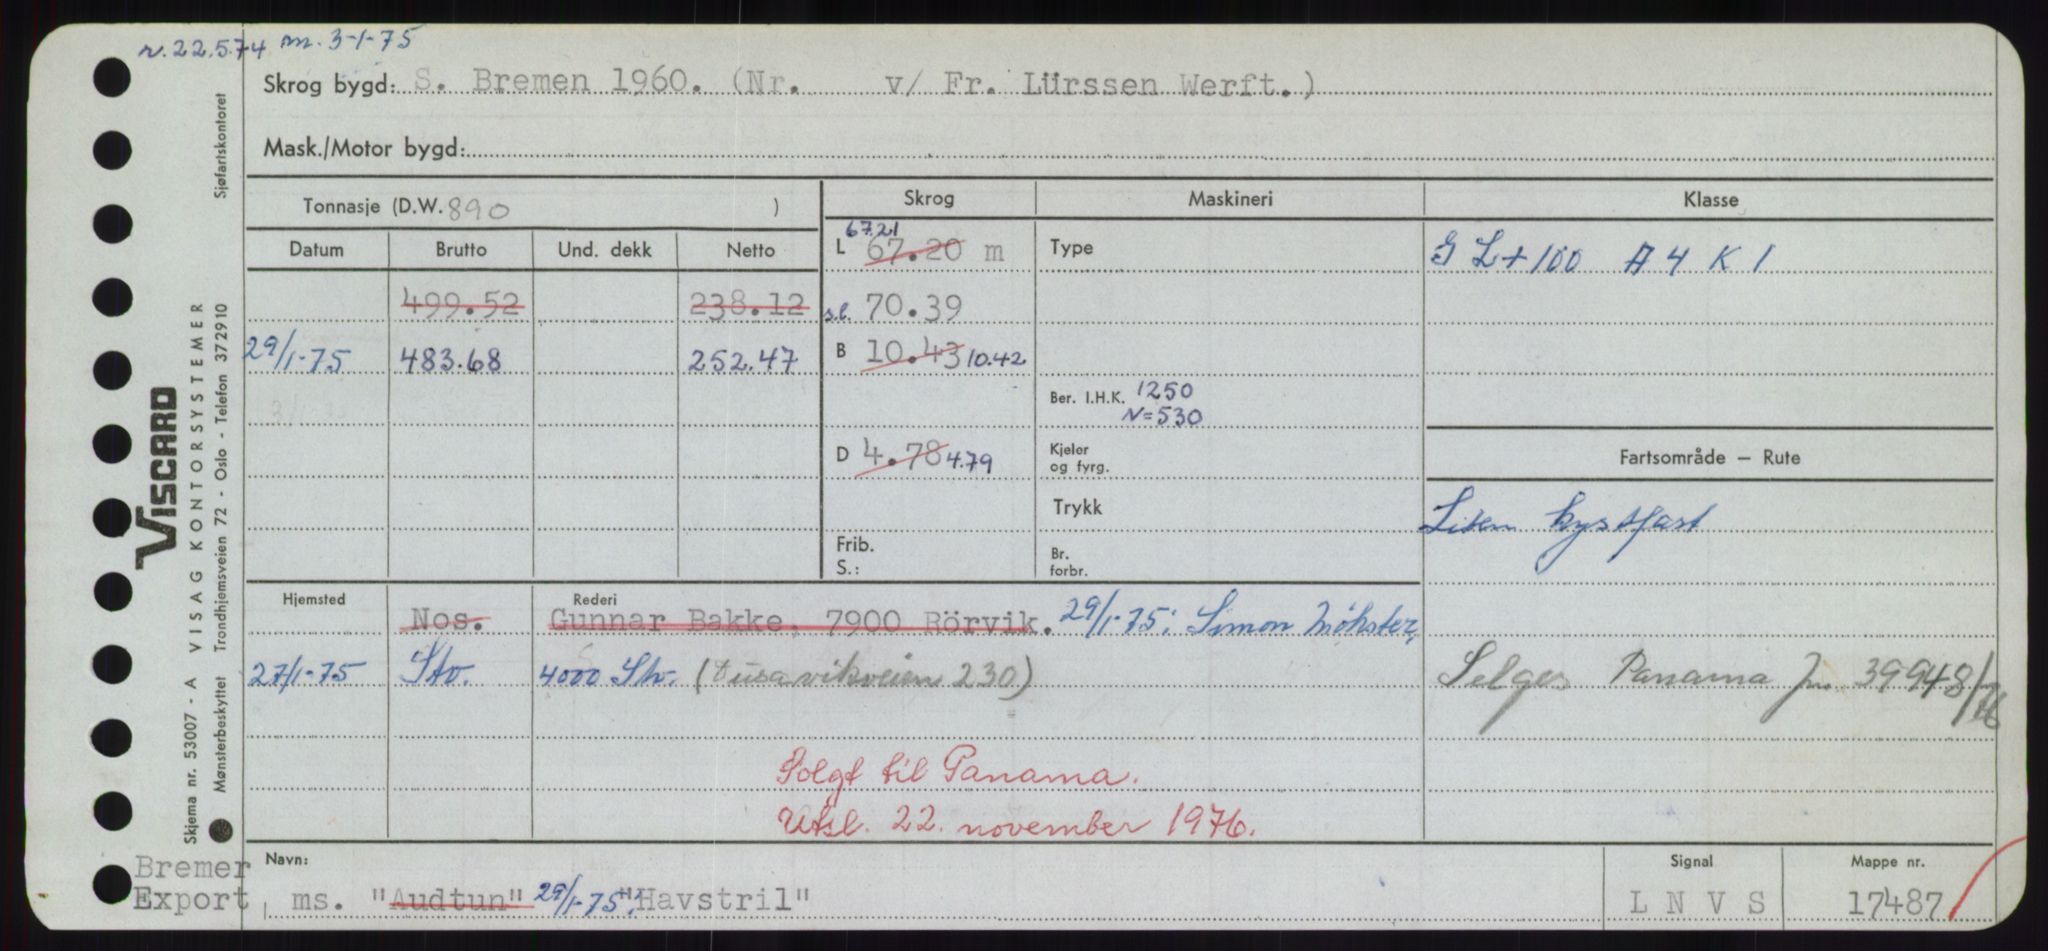 r. 22.5.74 m. 3-1-75
Skrog bygd: S. Bremen 1960. (Nr. v/ Fr. Lürssen Werft.)
Mask./Motor bygd:
Tonnasje (D.W. 890 )
Skrog Maskineri Klasse
Datum Brutto Und. dekk Netto
L 67.20 m 67.21
Type
G L + 100 A 4 K 1
499.52 238.12
s.l. 70.39
29/1-75 483.68 252.47
B 10.43 10.42
Ber. I.H.K. 1250
N=530
D 4.78 4.79
Kjeler
og fyrg.
Fartsområde — Rute
Trykk
Liten kystfart
Frib.
S.:
Br.
forbr.
Hjemsted Rederi
Nos. Gunnar Bakke, 7900 Rörvik. 29/1-75: Simon Møkster,
27/1-75 Stv. 4000 Stv. (Tusavikveien 230)
Selges Panama Jnr 39948/76
Solgt til Panama.
Utsl. 22. november 1976.
Navn: Signal Mappe nr.
Bremer
Export ms. "Audtun" 29/1-75: "Havstril" L N V S 17487
VISCARD
Skjema nr. 53007 - A VISAG KONTORSYSTEMER
Mønsterbeskyttet Trondhjemsveien 72 - Oslo - Telefon 372910 Sjøfartskontoret